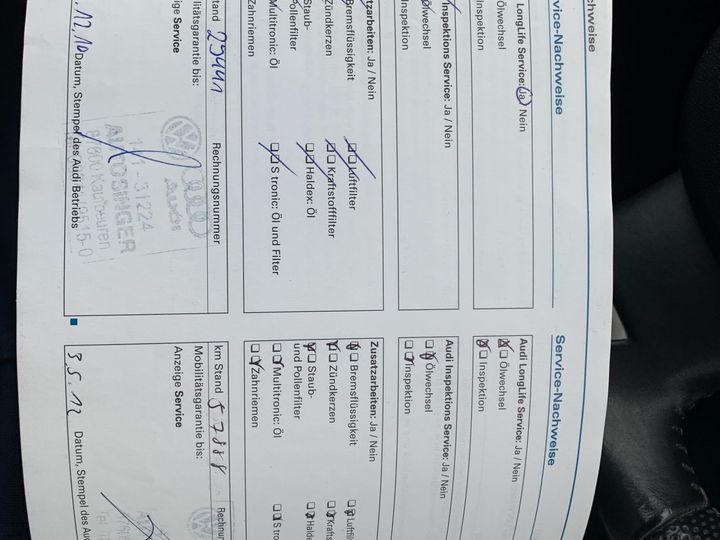 chweise
vice-Nachweise
LongLife Service: Ja / Nein
Ölwechsel
Inspektion
Inspektions Service: Ja / Nein
Ölwechsel
Inspektion
tzarbeiten: Ja / Nein
Bremsflüssigkeit
Luftfilter
Zündkerzen
Kraftstofffilter
Staub-
Pollenfilter
Haldex: Öl
Multitronic: Öl
S tronic: Öl und Filter
Zahnriemen
tand 29441
Rechnungsnummer
ilitätsgarantie bis:
eige Service
Audi
141 - 31224
AUTOSINGER
Kaufbeuren
.12.10 Datum, Stempel des Audi Betriebs
Service-Nachweise
Audi LongLife Service: Ja / Nein
Ölwechsel
Inspektion
Audi Inspektions Service: Ja / Nein
Ölwechsel
Inspektion
Zusatzarbeiten: Ja / Nein
Bremsflüssigkeit
Luftfil
Zündkerzen
Krafts
Staub-
und Pollenfilter
Halde
Multitronic: Öl
S tro
Zahnriemen
km Stand 57888
Rechnu
Mobilitätsgarantie bis:
Anzeige Service
3.5.12 Datum, Stempel des Au